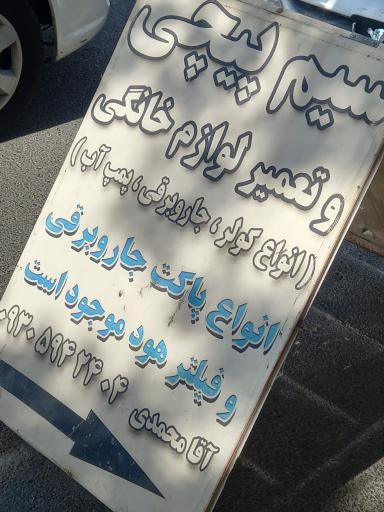 سیم پیچی
و تعمیر لوازم خانگی
(انواع کولر، جاروبرقی، پمپ آب)
انواع پاکت جاروبرقی
و فیلتر هود موجود است
۰۹۳۰ ۵۹۴ ۲۴۰۴
آقا محمدی